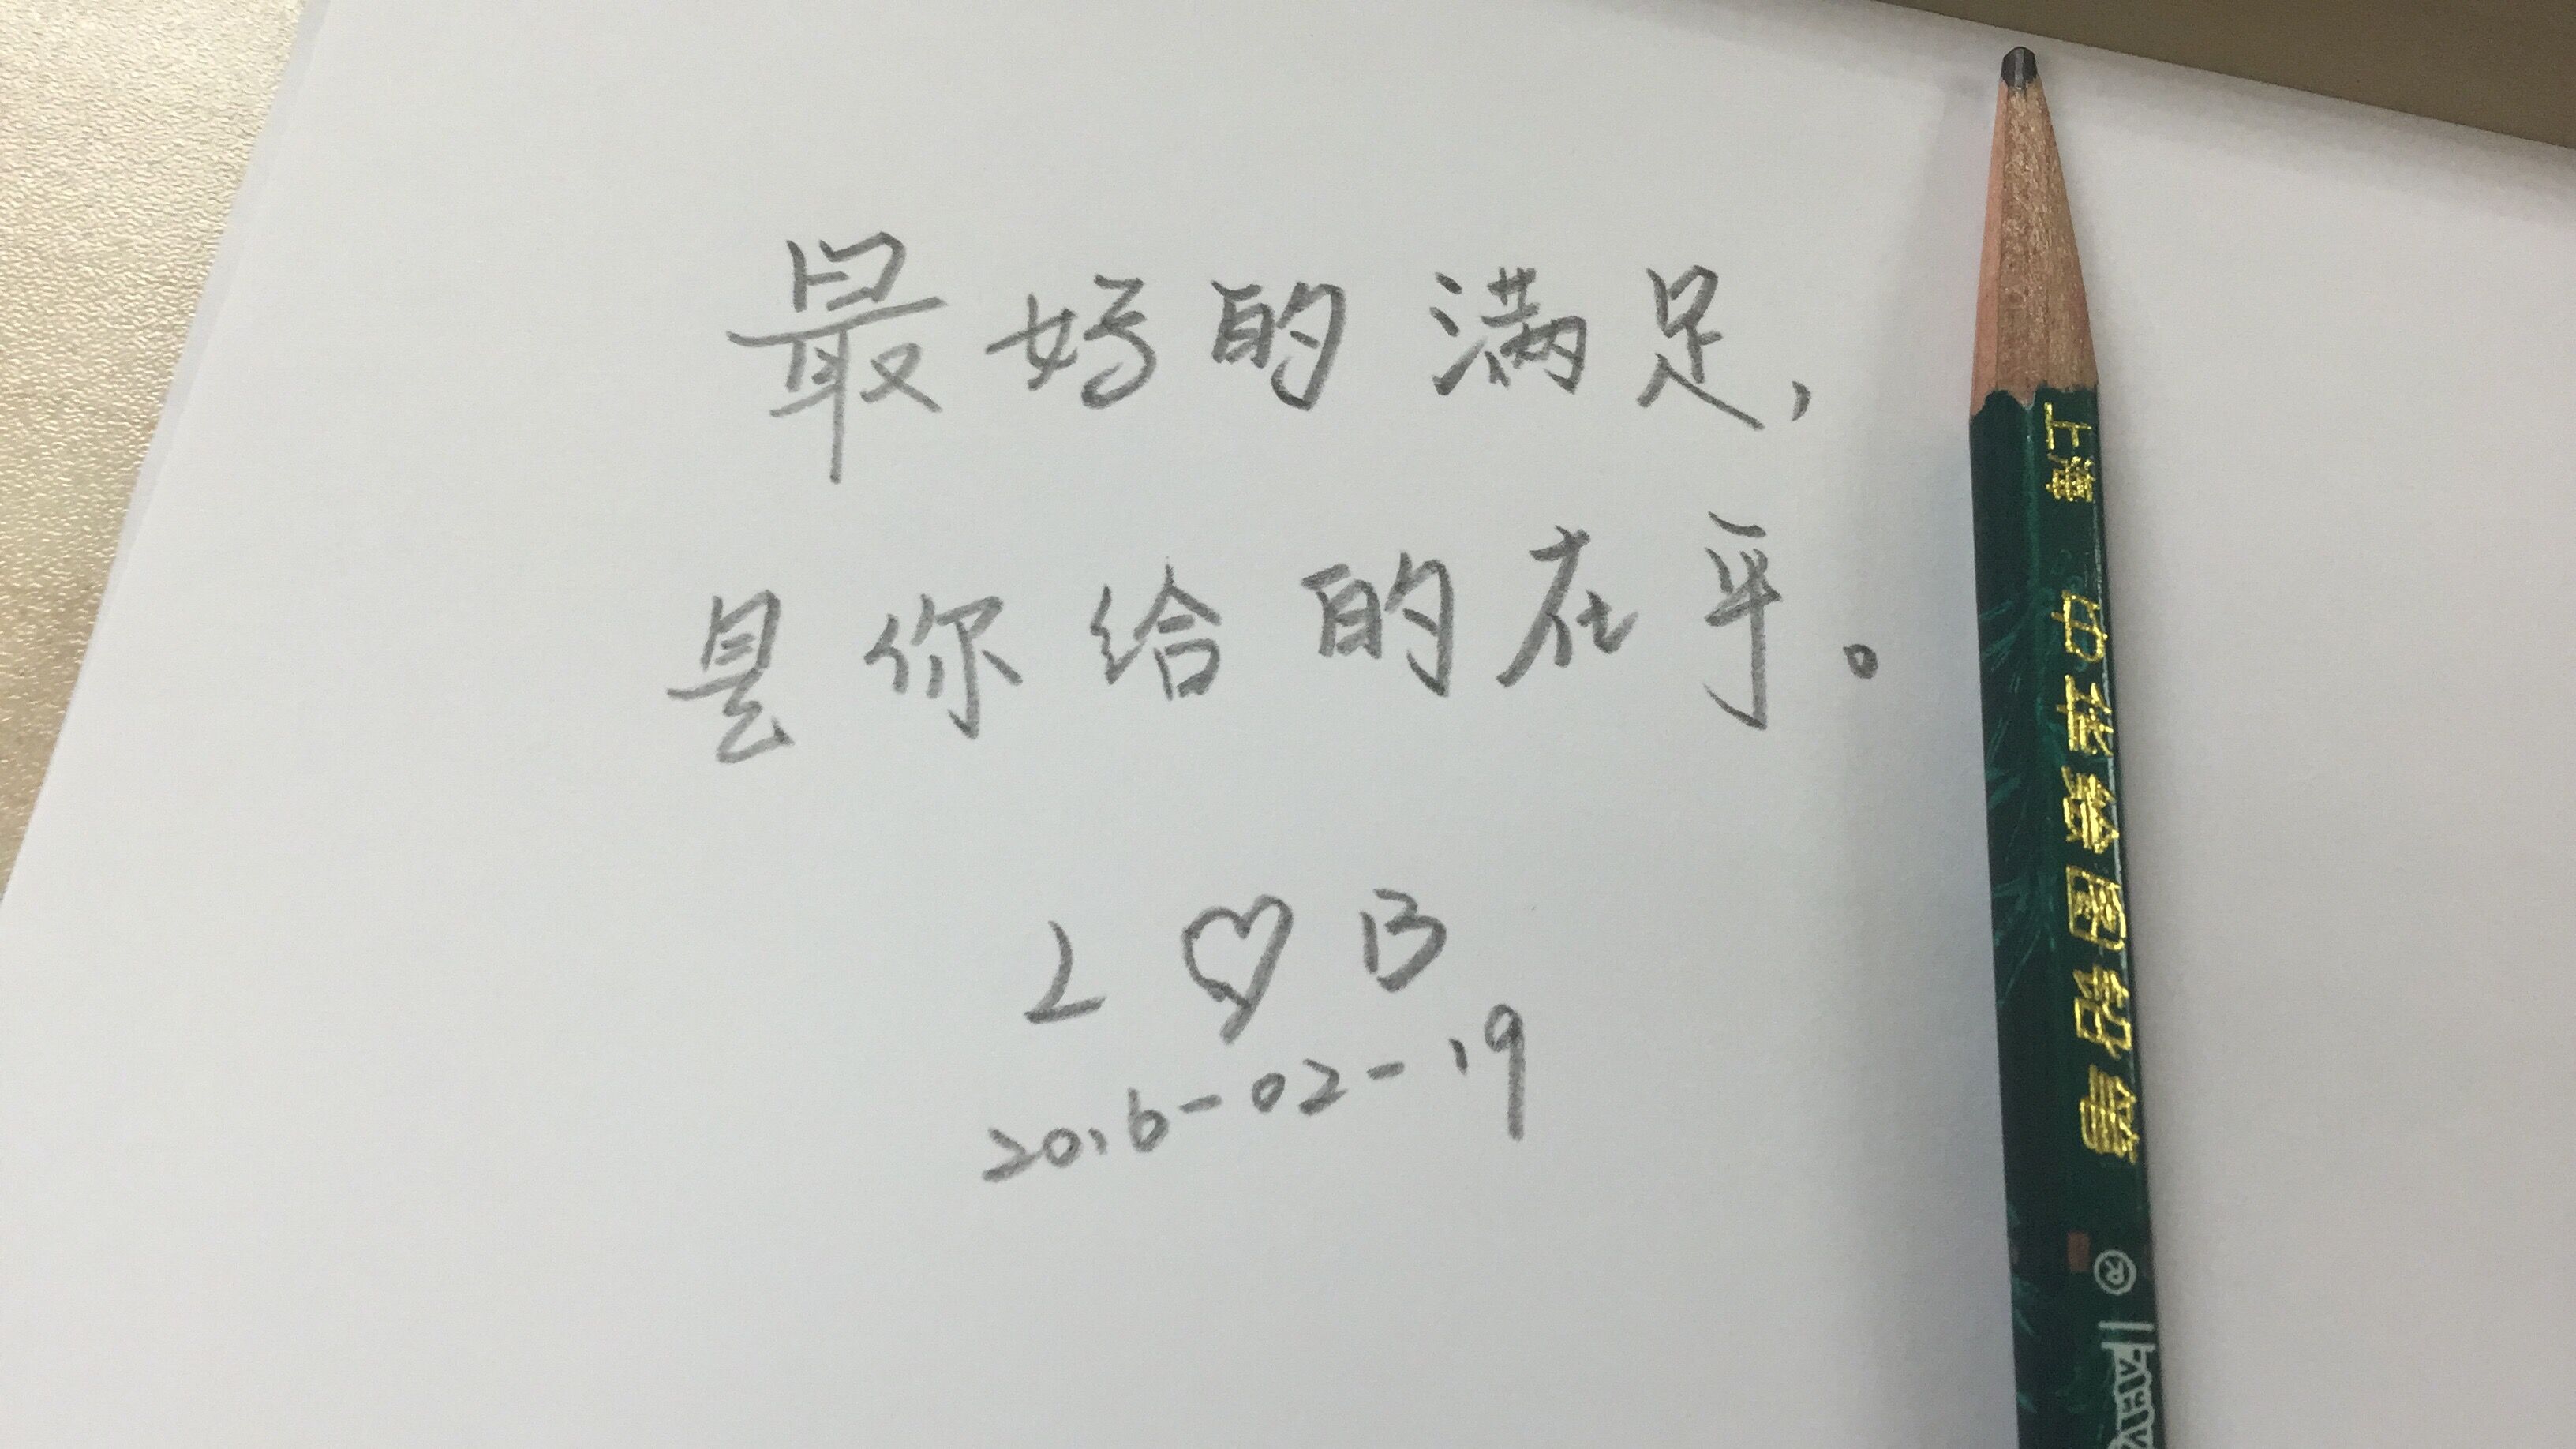 最好的满足，
是你给的在乎。
L ♡ B
2016-02-19
上海 中华绘图铅笔 ®